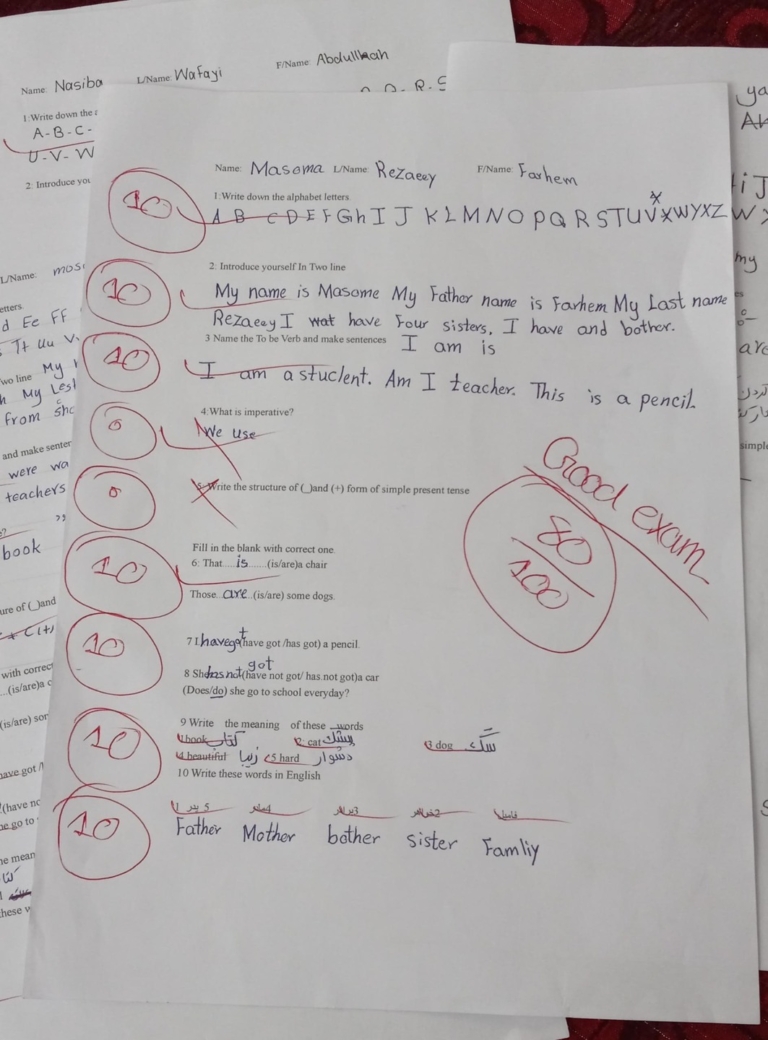 Name: Nasiba L/Name: Wafayi F/Name: Abdullkah
1:Write down the
A-B-C-
U-V-W
2: Introduce you
L/Name:
etters
d Ee FF
Tt Uu V
wo line My
h My Lest
from
and make senter
were wa
teachers
book
ure of (_)and
with correct
...(is/are)a c
(is/are) sor
ave got /
(have no
e go to
e mean
hese w
Name: Masoma L/Name: Rezaeey F/Name: Farhem
1:Write down the alphabet letters
10
A B C D E F G h I J K L M N O P Q R S T U V X W Y X Z
2: Introduce yourself In Two line
10
My name is Masome My Father name is Farhem My Last name
Rezaeey I wat have Four sisters, I have and bother.
3 Name the To be Verb and make sentences I am is
10
I am a stuclent. Am I teacher. This is a pencil.
4:What is imperative?
0
We use
5: Write the structure of (_)and (+) form of simple present tense
0
Good exam
80
100
Fill in the blank with correct one
6: That....is......(is/are)a chair
10
Those...are...(is/are) some dogs
7 I havegot(have got /has got) a pencil.
10
got
8 She hasnot(have not got/ has not got)a car
(Does/do) she go to school everyday?
9 Write the meaning of these words
10
1:book کتاب 2: cat پیشک 3 dog سگ
4 beautiful زیبا 5 hard دشوار
10 Write these words in English
10
Father Mother bother sister Famliy
ya
i J
W
my
are
simple